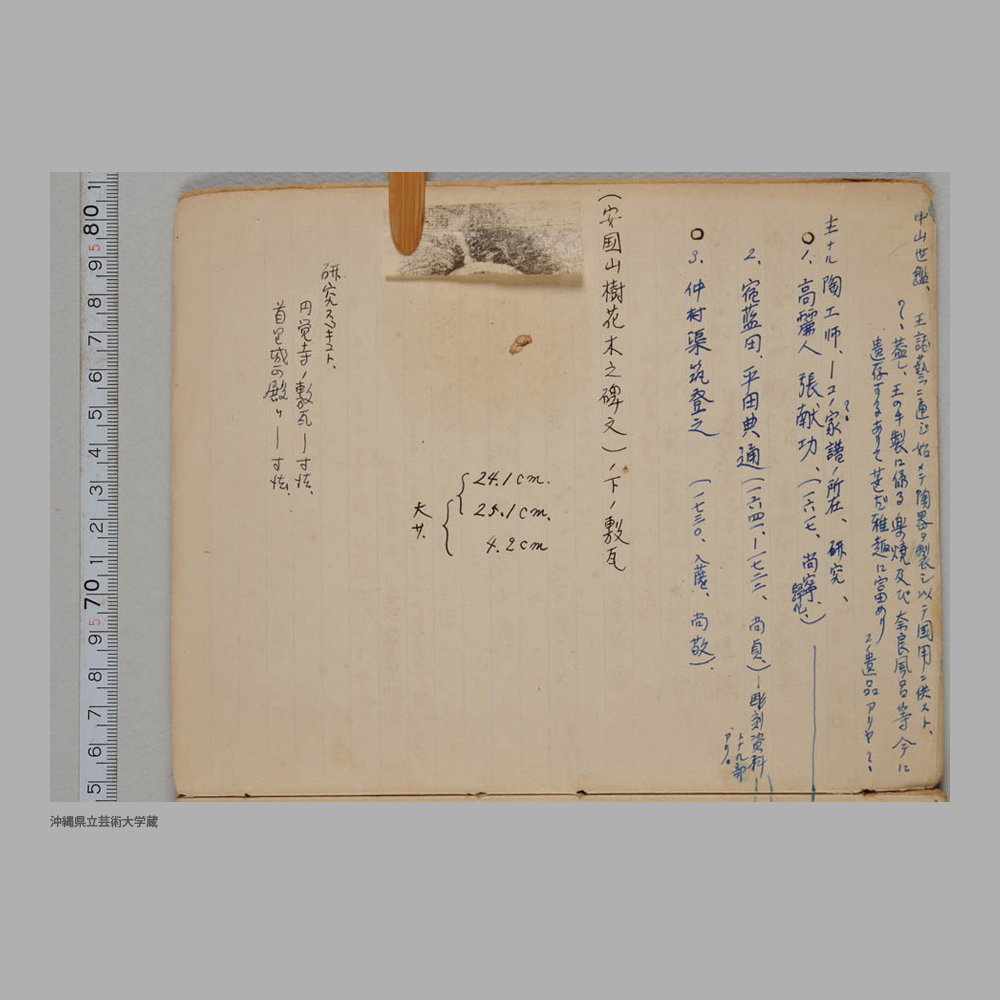 中山世鑑、
王諸藝ニ通じ始メテ陶器ヲ製シ以テ国用ニ供スト、
?、蓋し、王の手製に係る楽焼及び奈良風呂等今に
遺存するありて甚だ雅趣に富めり
2ノ遺品アリヤ?、
主ナル陶工师、ーコノ家譜ノ所在、研究、
1、高麗人 張献功、(一六一七、尚寧、帰化、)
2、宿藍田、平田典通(一六四一、ー一七二二、尚貞、)ー彫刻資料
トナル部アリ。
3、仲村渠筑登之 (一七三〇、入薩、尚敬)、
(安国山樹花木之碑文)ノ下ノ敷瓦
24.1cm.
25.1cm.
4.2cm
大サ、
研究スベキスト、
円覚寺ノ敷瓦ー寸法、
首里城ノ殿〃ー寸法、
80
70
1
9
8
7
6
5
4
3
2
1
9
8
7
6
5
沖縄県立芸術大学蔵